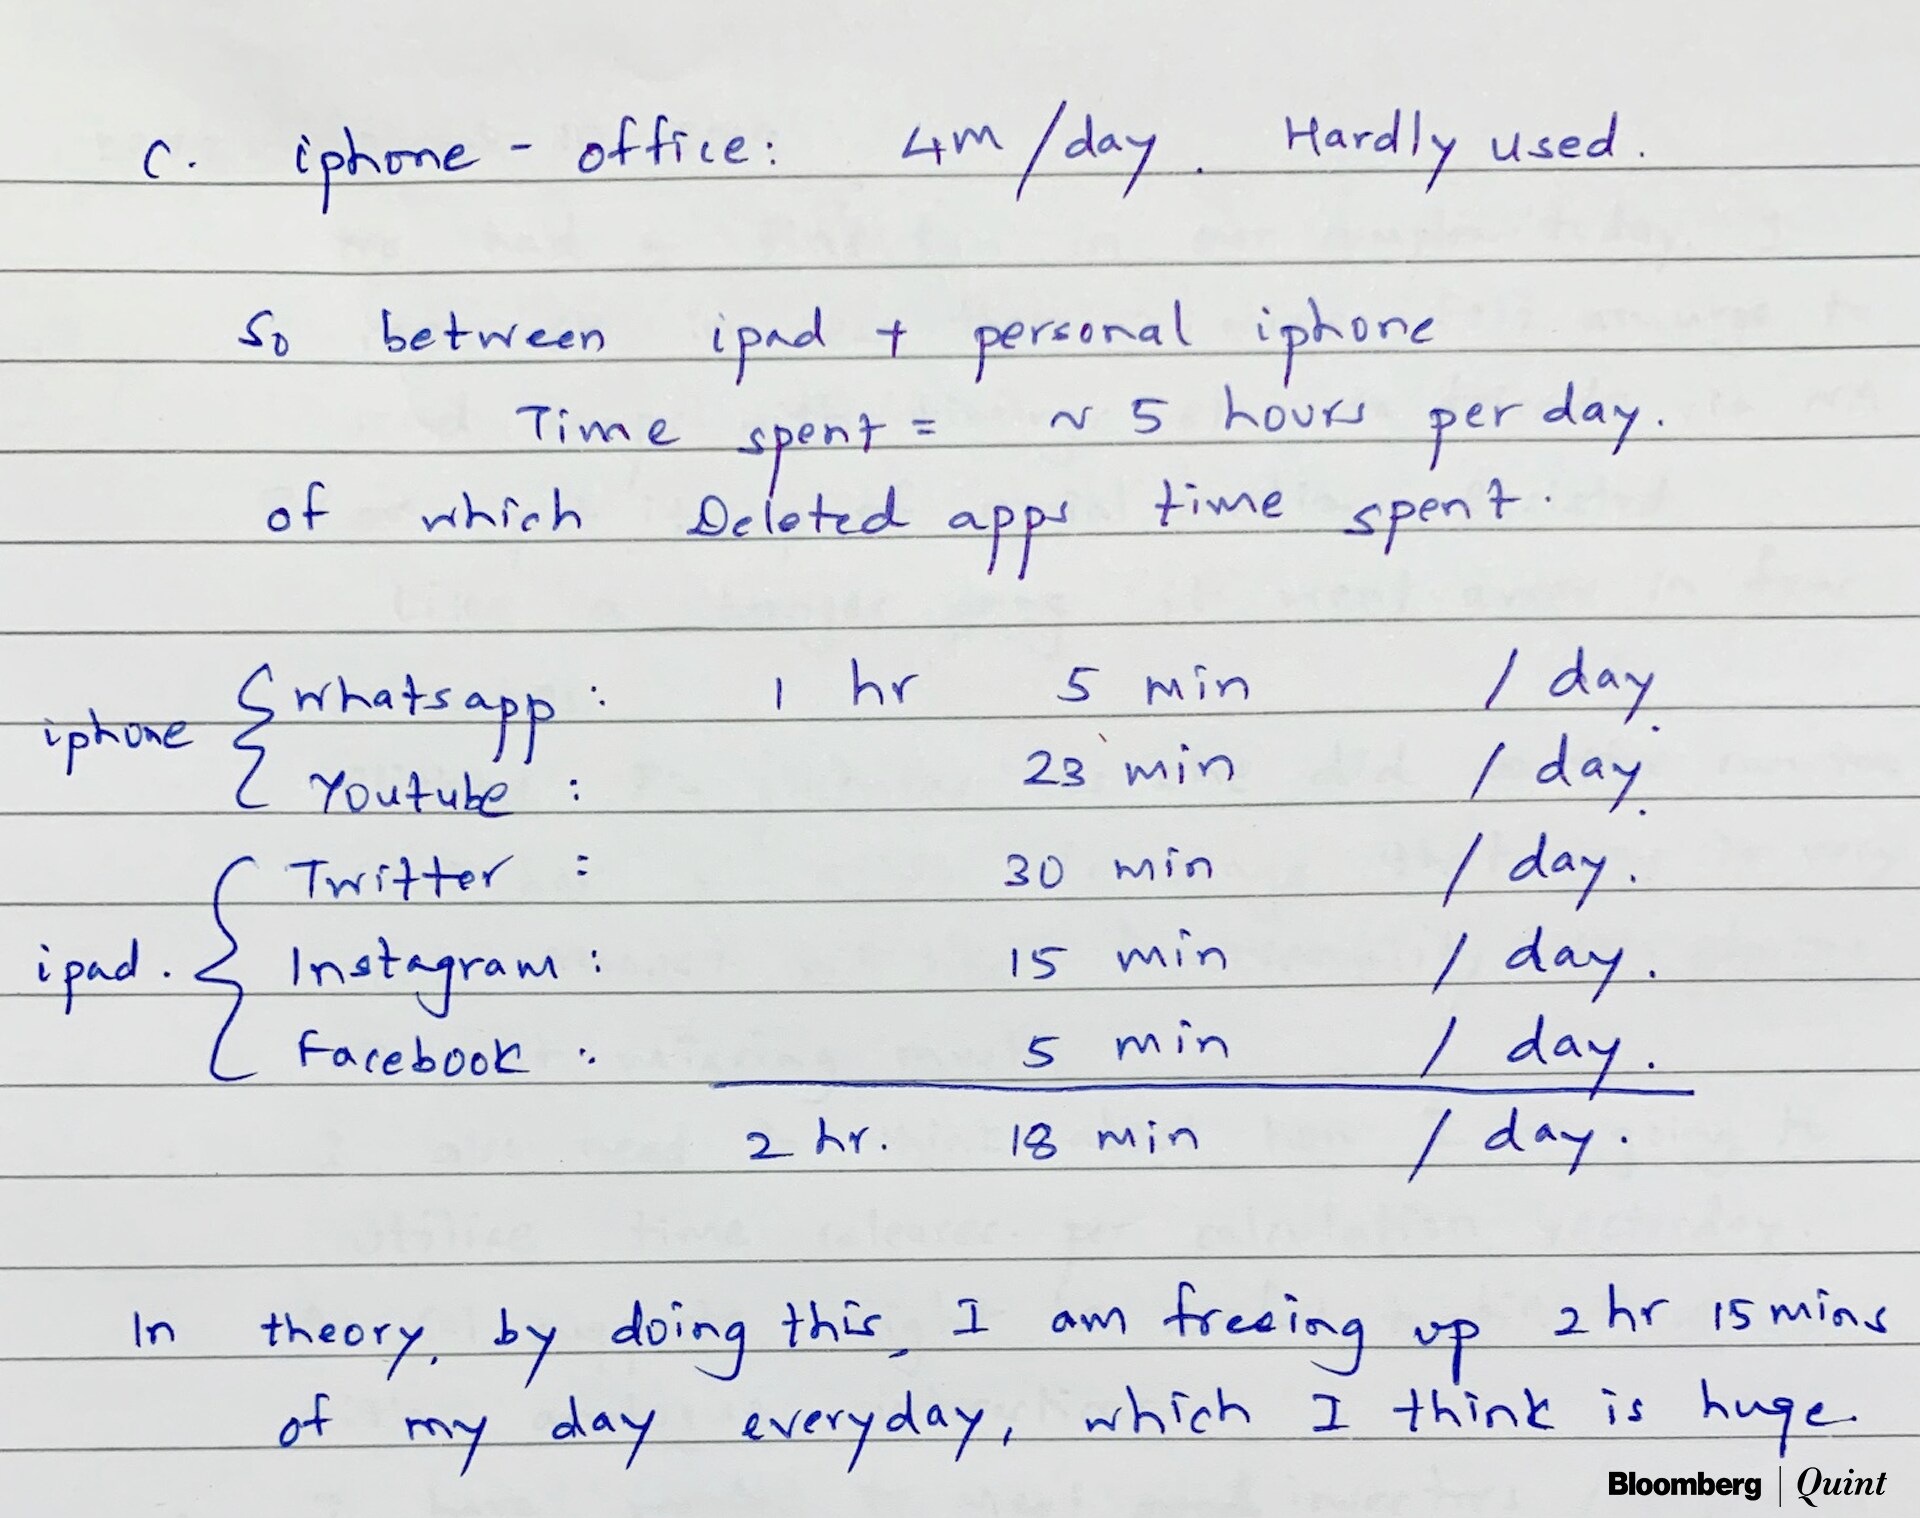 C. iphone - office: 4m/day. Hardly used.
So between ipad + personal iphone
Time spent = ~ 5 hours per day.
of which Deleted apps time spent.
iphone { Whatsapp: 1 hr 5 min / day.
Youtube: 23 min / day.
ipad. { Twitter: 30 min / day.
Instagram: 15 min / day.
Facebook: 5 min / day.
2 hr. 18 min / day.
In theory, by doing this, I am freeing up 2 hr 15 mins
of my day everyday, which I think is huge.
Bloomberg | Quint